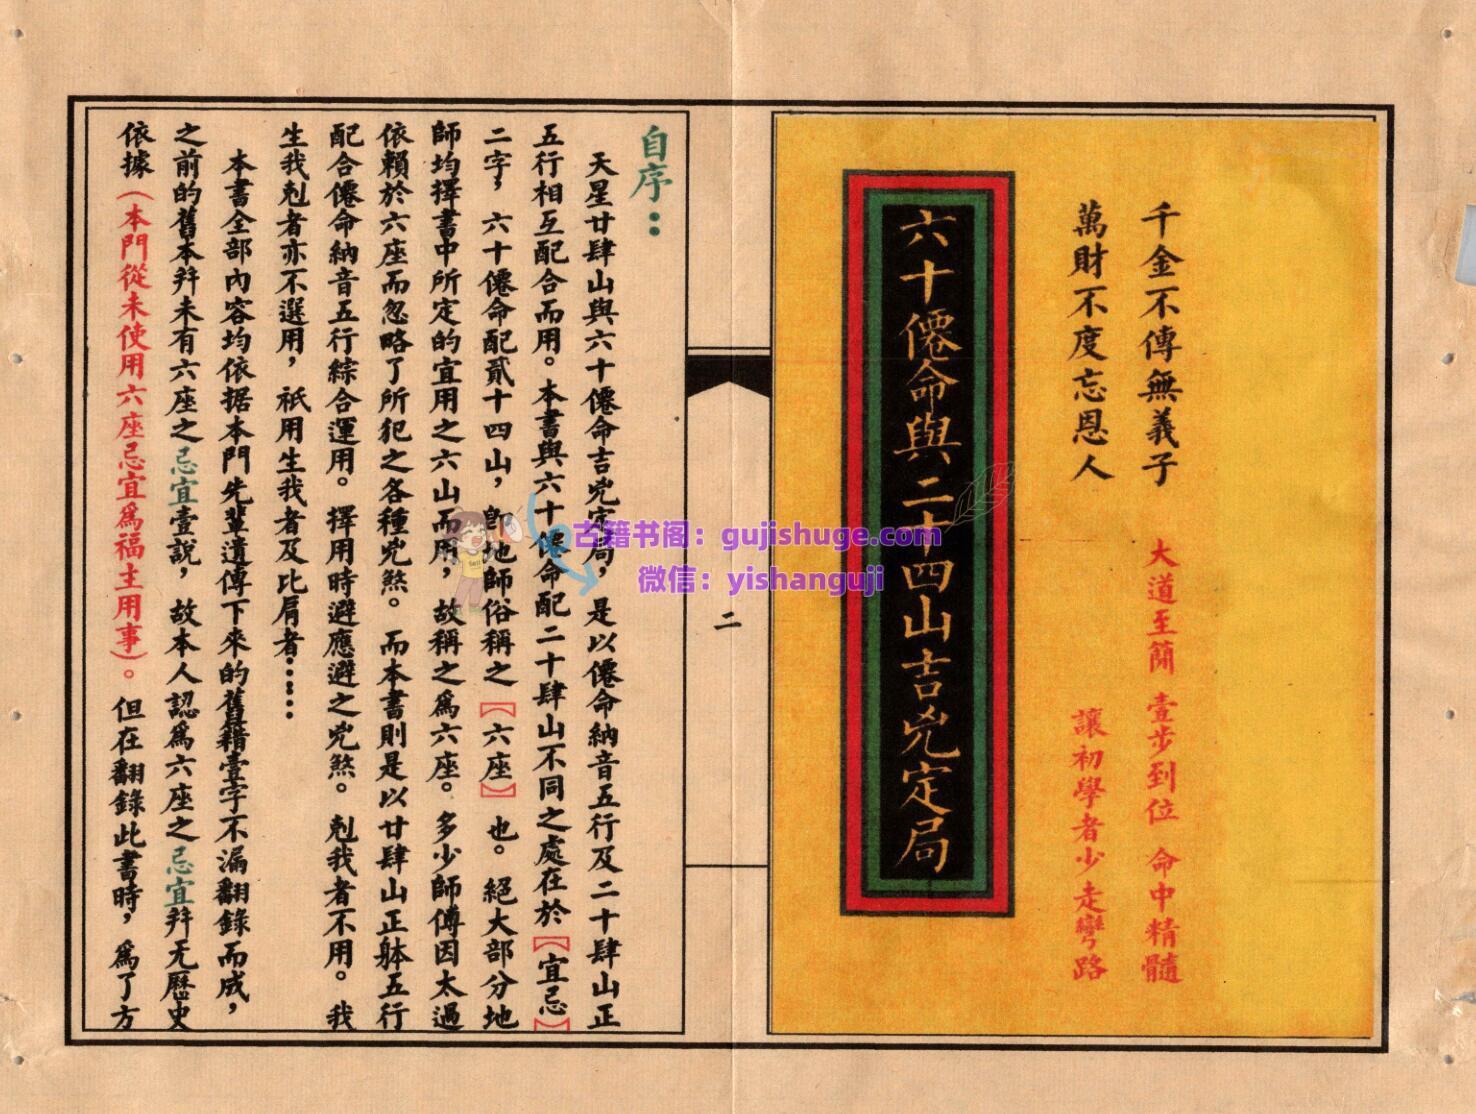 千金不傳無義子
萬財不度忘恩人
大道至簡 壹步到位 命中精髓
讓初學者少走彎路
六十僊命與二十四山吉兇定局
二
自序：
天星廿肆山與六十僊命吉兇定局，是以僊命納音五行及二十肆山正
五行相互配合而用。本書與六十僊命配二十肆山不同之處在於【宜忌】
二字，六十僊命配貳十四山，卽地師俗稱之【六座】也。絕大部分地
師均擇書中所定的宜用之六山而用，故稱之爲六座。多少師傅因太過
依賴於六座而忽略了所犯之各種兇煞。而本書則是以廿肆山正躰五行
配合僊命納音五行綜合運用。擇用時避應避之兇煞。剋我者不用。我
生我剋者亦不選用，祇用生我者及比肩者……
本書全部內容均依据本門先輩遺傳下來的舊籍壹字不漏翻錄而成，
之前的舊本幷未有六座之忌宜壹說，故本人認爲六座之忌宜幷无歷史
依據（本門從未使用六座忌宜爲福主用事）。但在翻錄此書時，爲了方
古籍书阁：gujishuge.com
微信：yishanguji